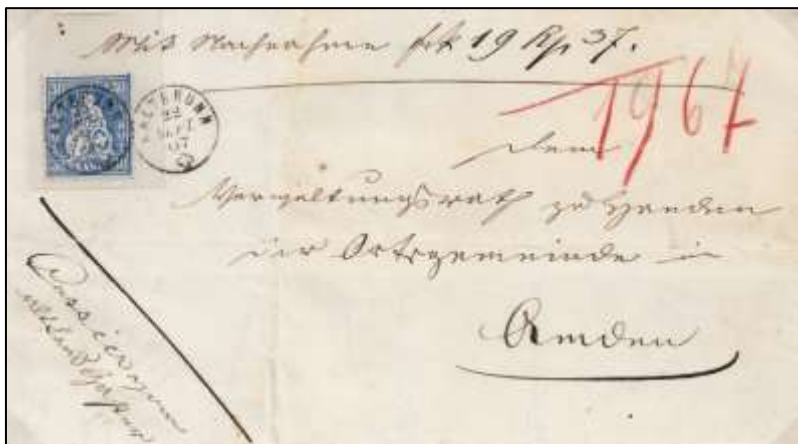 Mit Nachnahme frk 19 Rp 37.
KALTBRUNN
22
SEPT
67
1967
Dem
Verwaltungsrath zu Handen
der Ortsgemeinde in
Amden